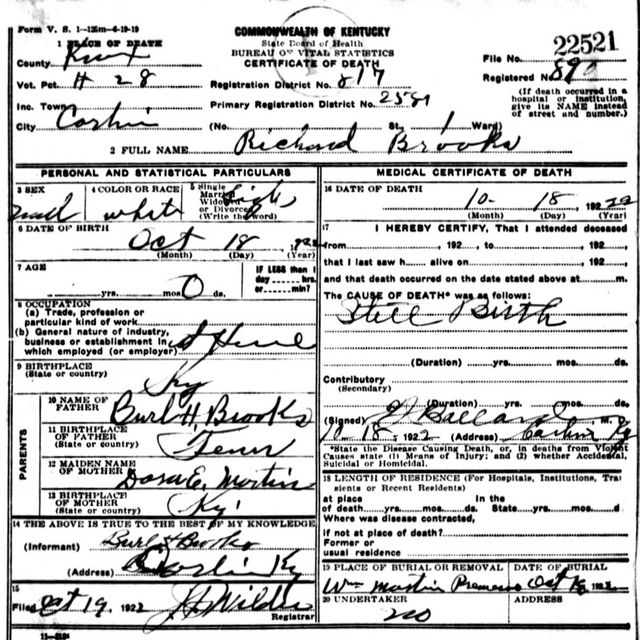 Form V. S. 1--125m-4-19-19
COMMONWEALTH OF KENTUCKY
State Board of Health
BUREAU OF VITAL STATISTICS
CERTIFICATE OF DEATH
File No. 22521
Registered No.
(If death occurred in a
hospital or institution,
give its NAME instead
of street and number.)
1 PLACE OF DEATH
County Knox
Vot. Pct. # 28
Registration District No. 817
Inc. Town
Primary Registration District No. 2581
City Corbin (No. St., 1 Ward)
2 FULL NAME Richard Brooks
PERSONAL AND STATISTICAL PARTICULARS
3 SEX
4 COLOR OR RACE white
5 Single
Married
Widowed
or Divorced
(Write the word)
Single
6 DATE OF BIRTH
Oct 18, 1922
(Month) (Day) (Year)
7 AGE
IF LESS than 1
day ------ hrs.
or ------ min?
yrs. mos. 0 ds.
8 OCCUPATION
(a) Trade, profession or
particular kind of work
(b) General nature of industry,
business or establishment in
which employed (or employer) at Home
9 BIRTHPLACE
(State or country)
Ky
PARENTS
10 NAME OF
FATHER Burl H. Brooks
11 BIRTHPLACE
OF FATHER
(State or country) Tenn
12 MAIDEN NAME
OF MOTHER Dora E. Martin
13 BIRTHPLACE
OF MOTHER
(State or country) Ky
14 THE ABOVE IS TRUE TO THE BEST OF MY KNOWLEDGE
(Informant) Burl H Brooks
(Address) Corbin Ky
15
Filed Oct 19, 1922 Registrar
11-3184
MEDICAL CERTIFICATE OF DEATH
16 DATE OF DEATH
10- 18, 1922
(Month) (Day) (Year)
17 I HEREBY CERTIFY, That I attended deceased
from, 192, to, 192,
that I last saw h alive on, 192,
and that death occurred on the date stated above at m.
The CAUSE OF DEATH* was as follows:
Still Birth
(Duration) yrs. mos. ds.
Contributory
(Secondary)
(Duration) yrs. mos. ds.
(Signed) Ballard M. D.
18, 1922 (Address) Corbin Ky
*State the Disease Causing Death, or, in deaths from Violent
Causes state (1) Means of Injury; and (2) whether Accidental,
Suicidal or Homicidal.
18 LENGTH OF RESIDENCE (For Hospitals, Institutions, Tra
sients or Recent Residents)
at place In the
of death yrs. mos. ds. State yrs. mos. d
Where was disease contracted,
if not at place of death?
Former or
usual residence
19 PLACE OF BURIAL OR REMOVAL
DATE OF BURIAL
Wm Martin Oct 1922
20 UNDERTAKER no
ADDRESS